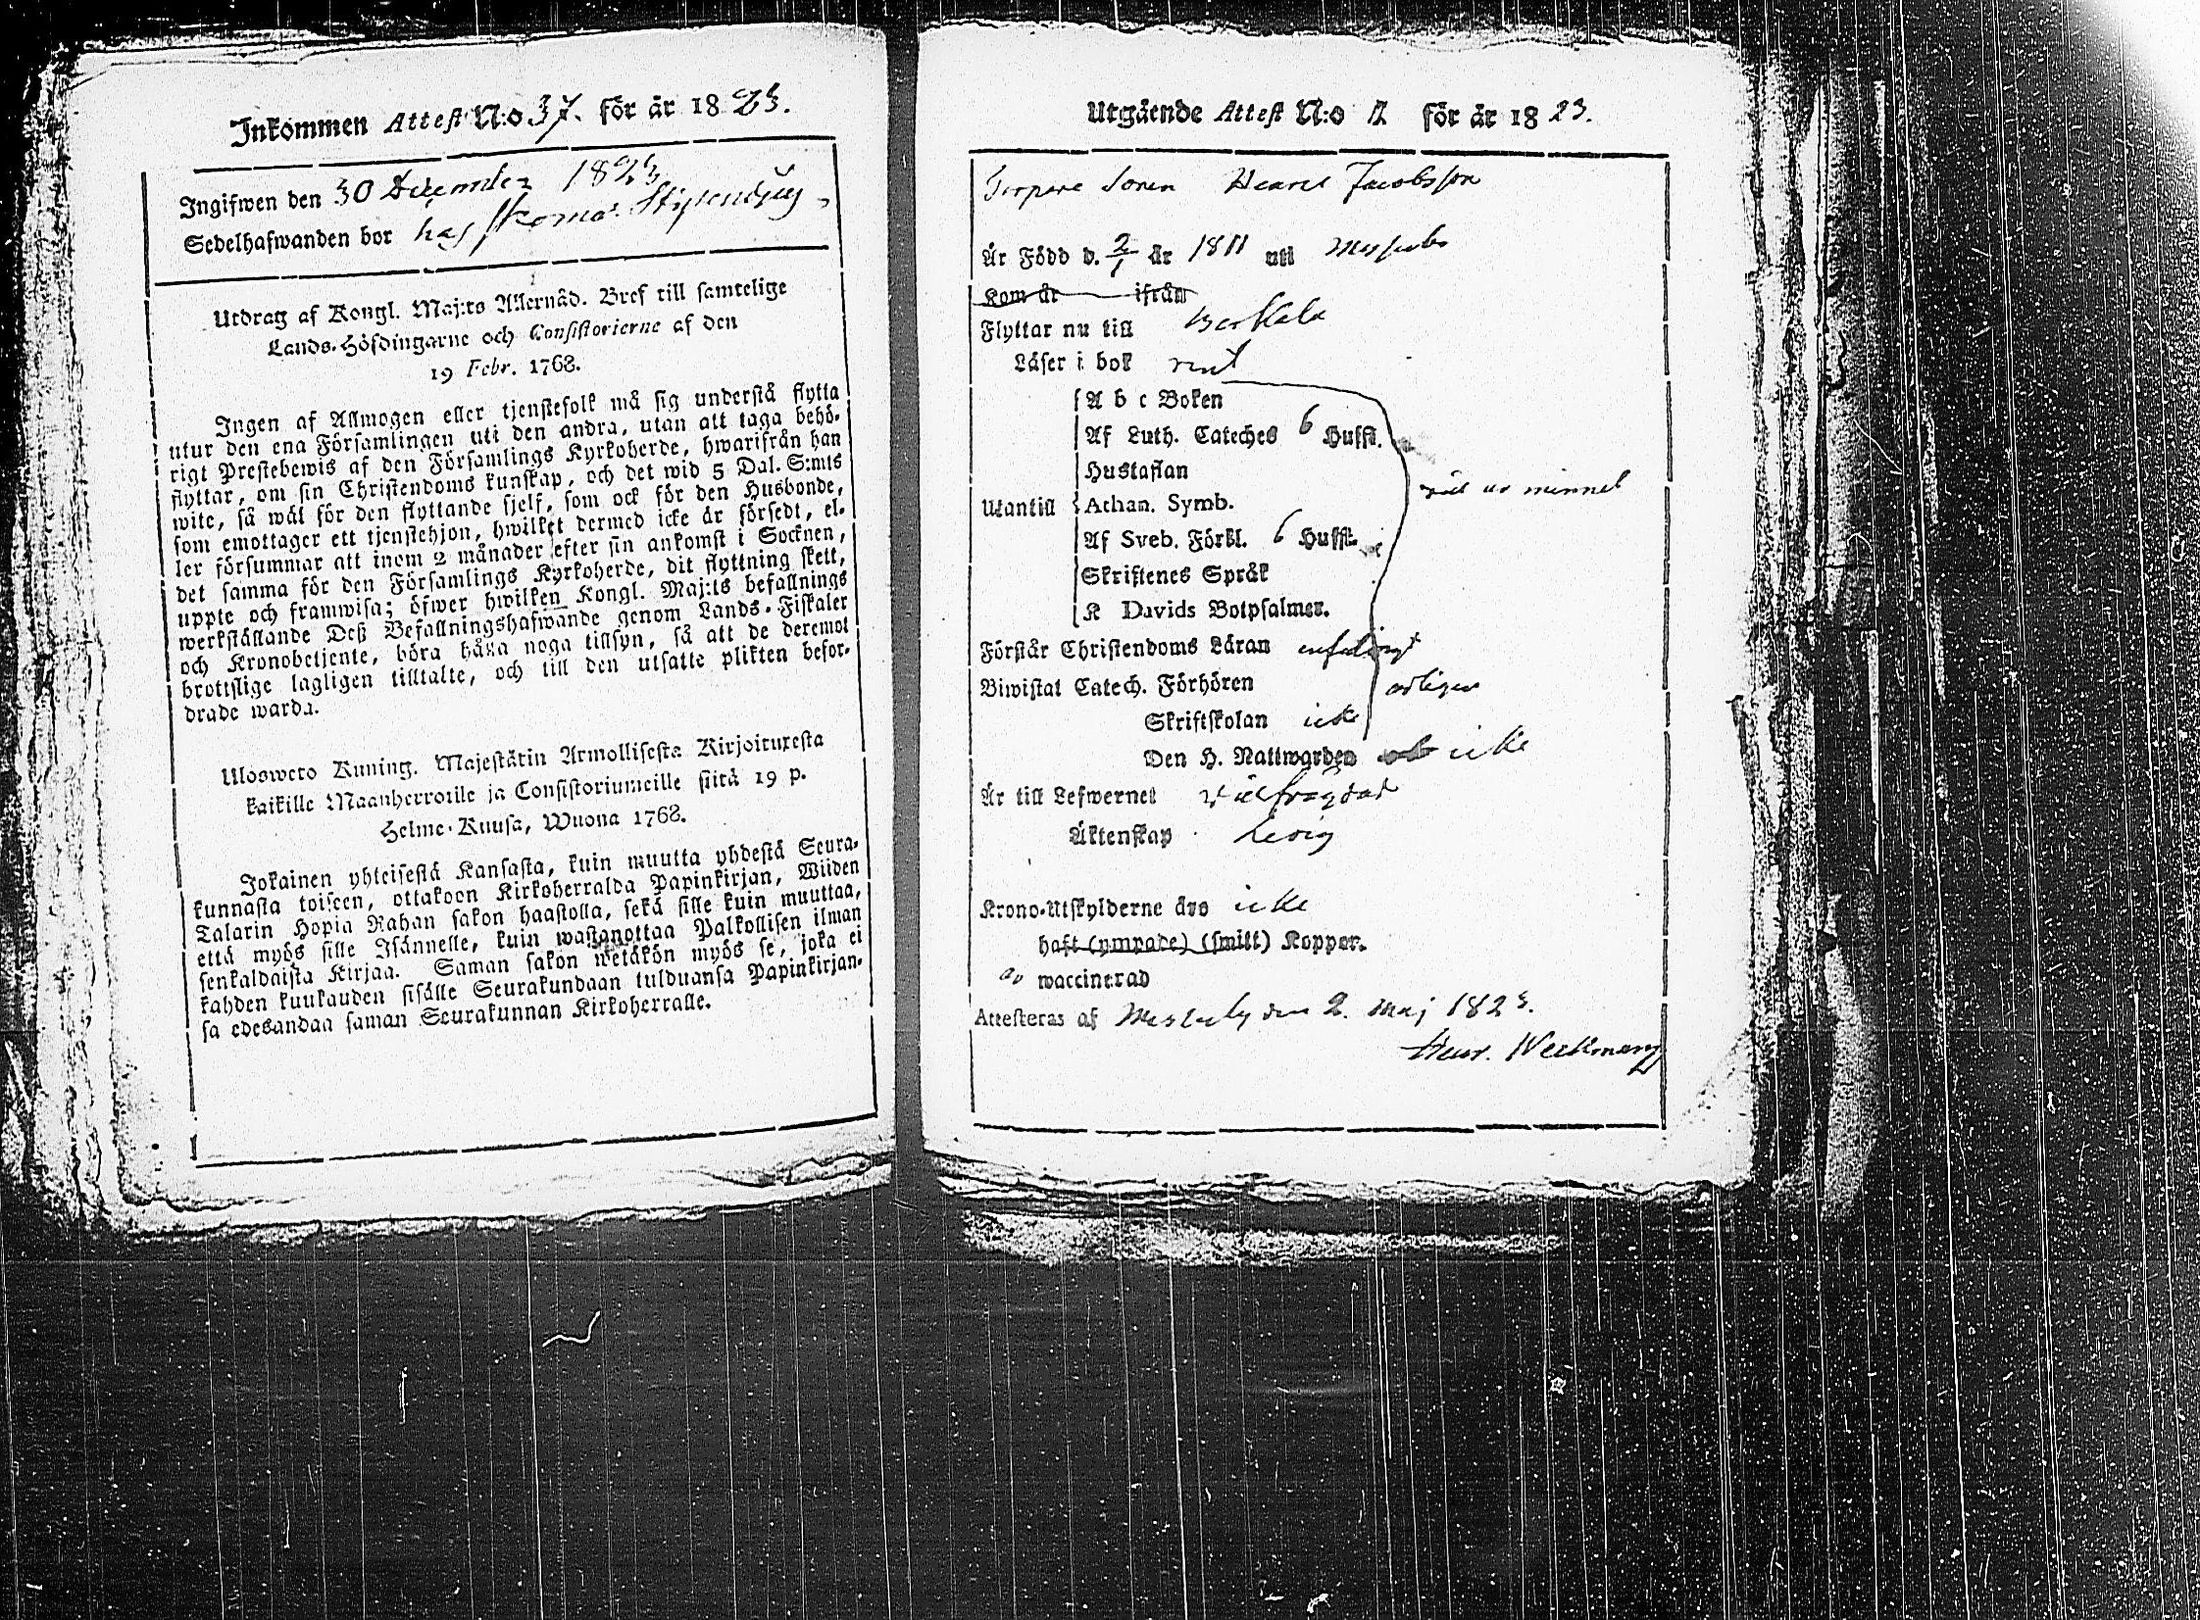 Inkommen Attest N:o 37. för år 1823.
Ingifwen den 30 December 1823
Sedelhafwanden bor hos
Utdrag af Kongl. Maj:ts Allernåd. Bref till samtelige
Lands-Höfdingarne och Consistorierne af den
19 Febr. 1768.
Ingen af Allmogen eller tjenstefolk må sig understå flytta
utur den ena Församlingen uti den andra, utan att taga behö-
rigt Prestebewis af den Församlings Kyrkoherde, hwarifrån han
flyttar, om sin Christendoms kunskap, och det wid 5 Dal. S:mts
wite, så wäl för den flyttande sjelf, som ock för den Husbonde,
som emottager ett tjenstehjon, hwilket dermed icke är försedt, el-
ler försummar att inom 2 månader efter sin ankomst i Socknen,
det samma för den Församlings Kyrkoherde, dit flyttning skett,
uppte och framwisa; öfwer hwilken Kongl. Maj:ts befallnings
werkställande Deß Befallningshafwande genom Lands-Fiskaler
och Kronobetjente, böra hålla noga tillsyn, så att de deremot
brottslige lagligen tilltalte, och till den utsatte plikten befor-
drade warda.
Ulosweto Kuning. Majestätin Armollisesta Kirjoituxesta
kaikille Maanherroille ja Consistoriumeille siitä 19 p.
Helme-Kuusa, Wuona 1768.
Jokainen yhteisestä Kansasta, kuin muutta yhdestä Seura-
kunnasta toiseen, ottakoon Kirkoherralda Papinkirjan, Wiiden
Talarin Hopia Rahan sakon haastolla, sekä sille kuin muuttaa,
että myös sille Isännelle, kuin wastanottaa Palkollisen ilman
senkaldaista Kirjaa. Saman sakon wetäkön myös se, joka ei
kahden kuukauden sisälle Seurakundaan tulduansa Papinkirjan-
sa edesandaa saman Seurakunnan Kirkoherralle.
Utgående Attest N:o för år 1823.
Sonen Jacobsson
Är Född d. 2/1 år 1811 uti
Kom år ifrån
Flyttar nu till
Läser i bok rent
A b c Boken
Af Luth. Cateches 6 Hufst.
Hustaflan
Utantill Athan. Symb. ur minnet
Af Sveb. Förkl. 6 Hufst.
Skriftenes Språk
K Davids Botpsalmer.
Förstår Christendoms Läran enfaldigt
Biwistat Catech. Förhören årligen
Skriftskolan icke
Den H. Nattwarden icke
Är till Lefwernet wälfrägdad
Äktenskap ledig
Krono-Utskylderne äro icke
haft (ympade) (smitt) Koppor.
är waccinerad
Attesteras af den 2. Maj 1823.
Henr. Weckman